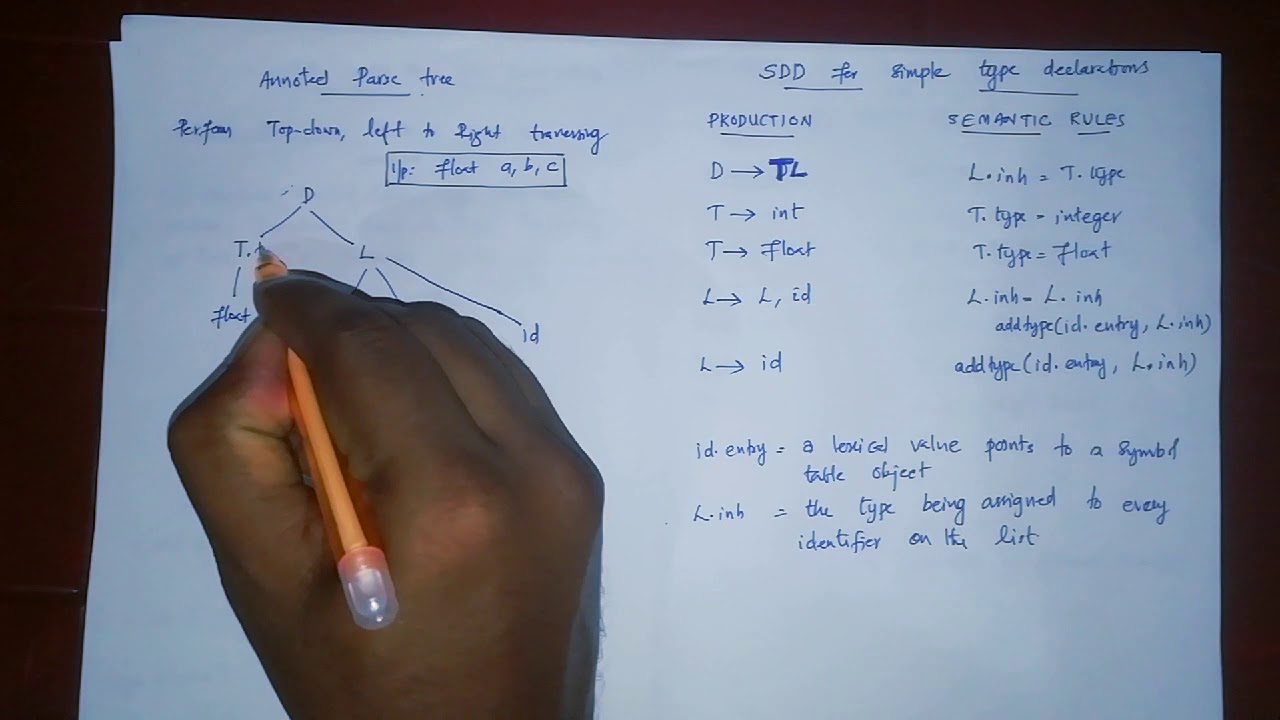 Annoted Parse tree
Perform Top-down, left to Right traversing
i/p: float a, b, c
D
T. L
float id
SDD for simple type declarations
PRODUCTION SEMANTIC RULES
D → TL L.inh = T.type
T → int T.type = integer
T → float T.type = float
L → L, id L.inh = L.inh
addtype(id.entry, L.inh)
L → id addtype(id.entry, L.inh)
id.entry = a lexical value points to a symbol
table object
L.inh = the type being assigned to every
identifier on the list